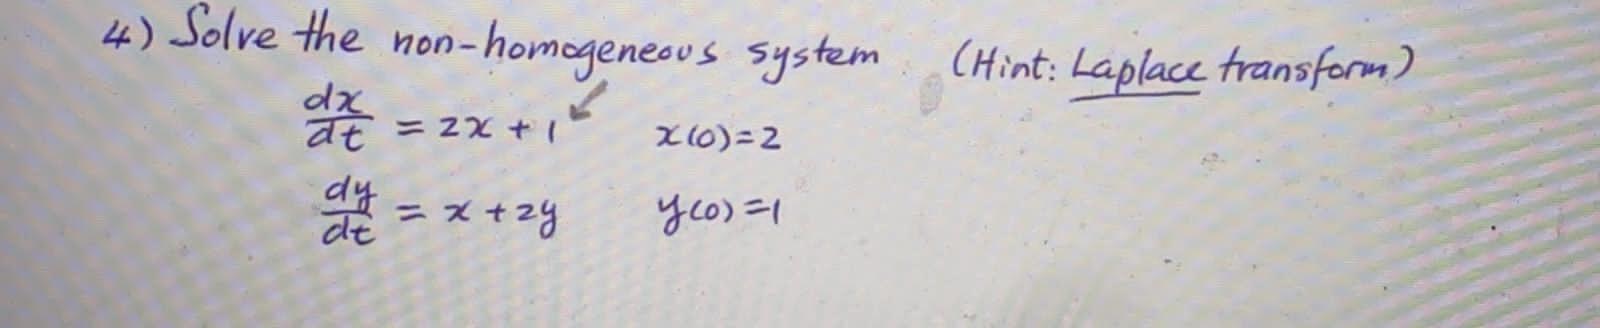 4) Solve the non-homogeneous system (Hint: Laplace transform)
dx/dt = 2x + 1 x(0)=2
dy/dt = x + 2y y(0)=1